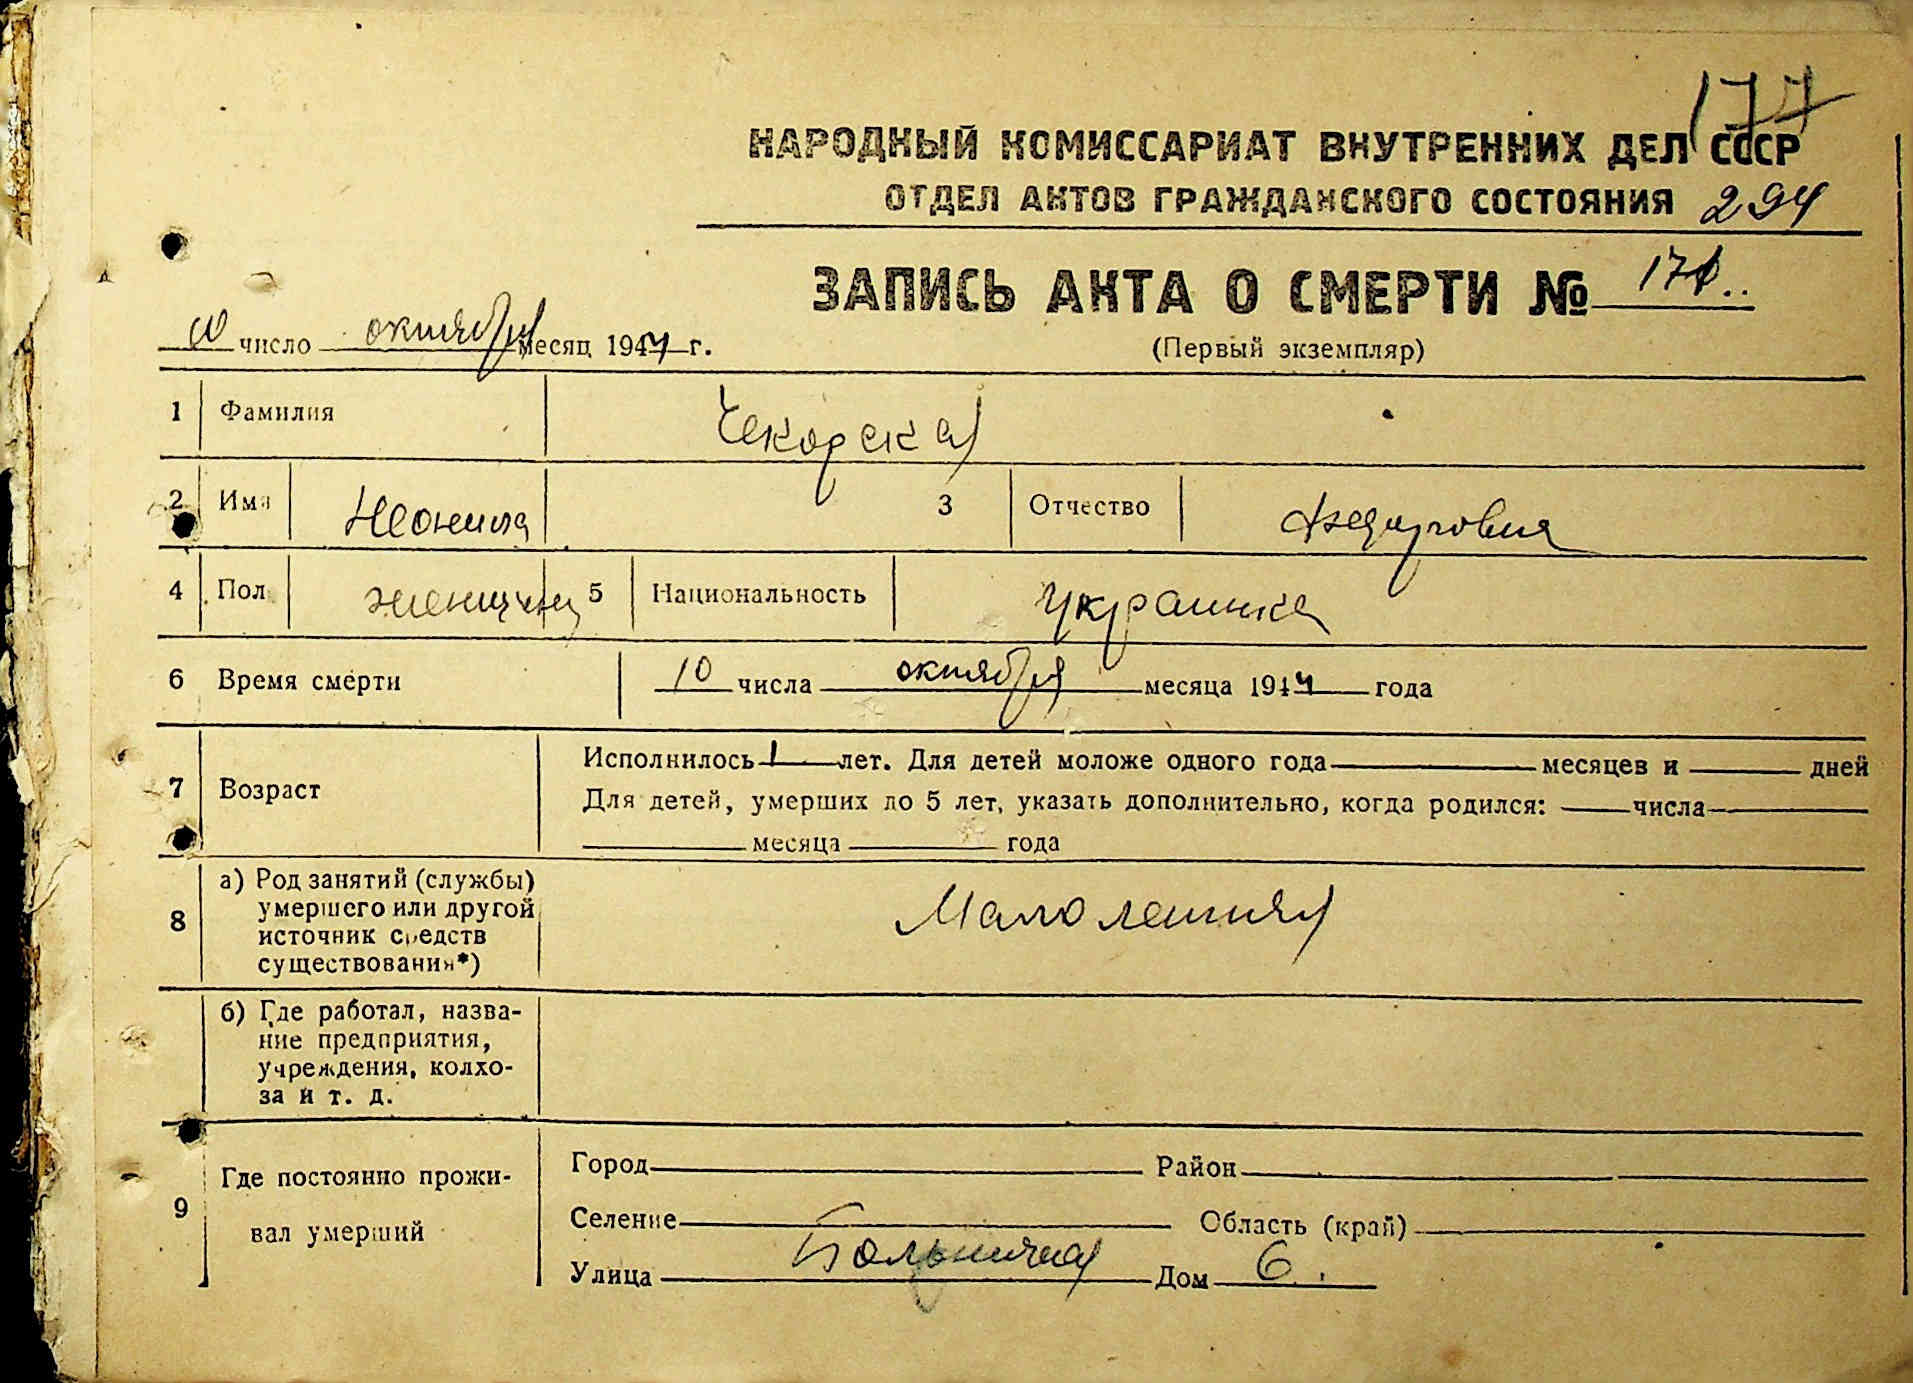 177
НАРОДНЫЙ КОМИССАРИАТ ВНУТРЕННИХ ДЕЛ СССР
ОТДЕЛ АКТОВ ГРАЖДАНСКОГО СОСТОЯНИЯ 294
ЗАПИСЬ АКТА О СМЕРТИ №
10 число октября месяц 1944 г.
(Первый экземпляр)
1 Фамилия Чекорская
2 Имя Неонила 3 Отчество
4 Пол женщина 5 Национальность украинка
6 Время смерти 10 числа октября месяца 1944 года
7 Возраст Исполнилось 1 лет. Для детей моложе одного года месяцев и дней
Для детей, умерших до 5 лет, указать дополнительно, когда родился: числа
месяца года
8 а) Род занятий (службы) умершего или другой источник средств существования*) Малолетняя
б) Где работал, назва-
ние предприятия,
учреждения, колхо-
за и т. д.
9 Где постоянно прожи-
вал умерший
Город Район
Селение Область (край)
Улица Больничная Дом 6.